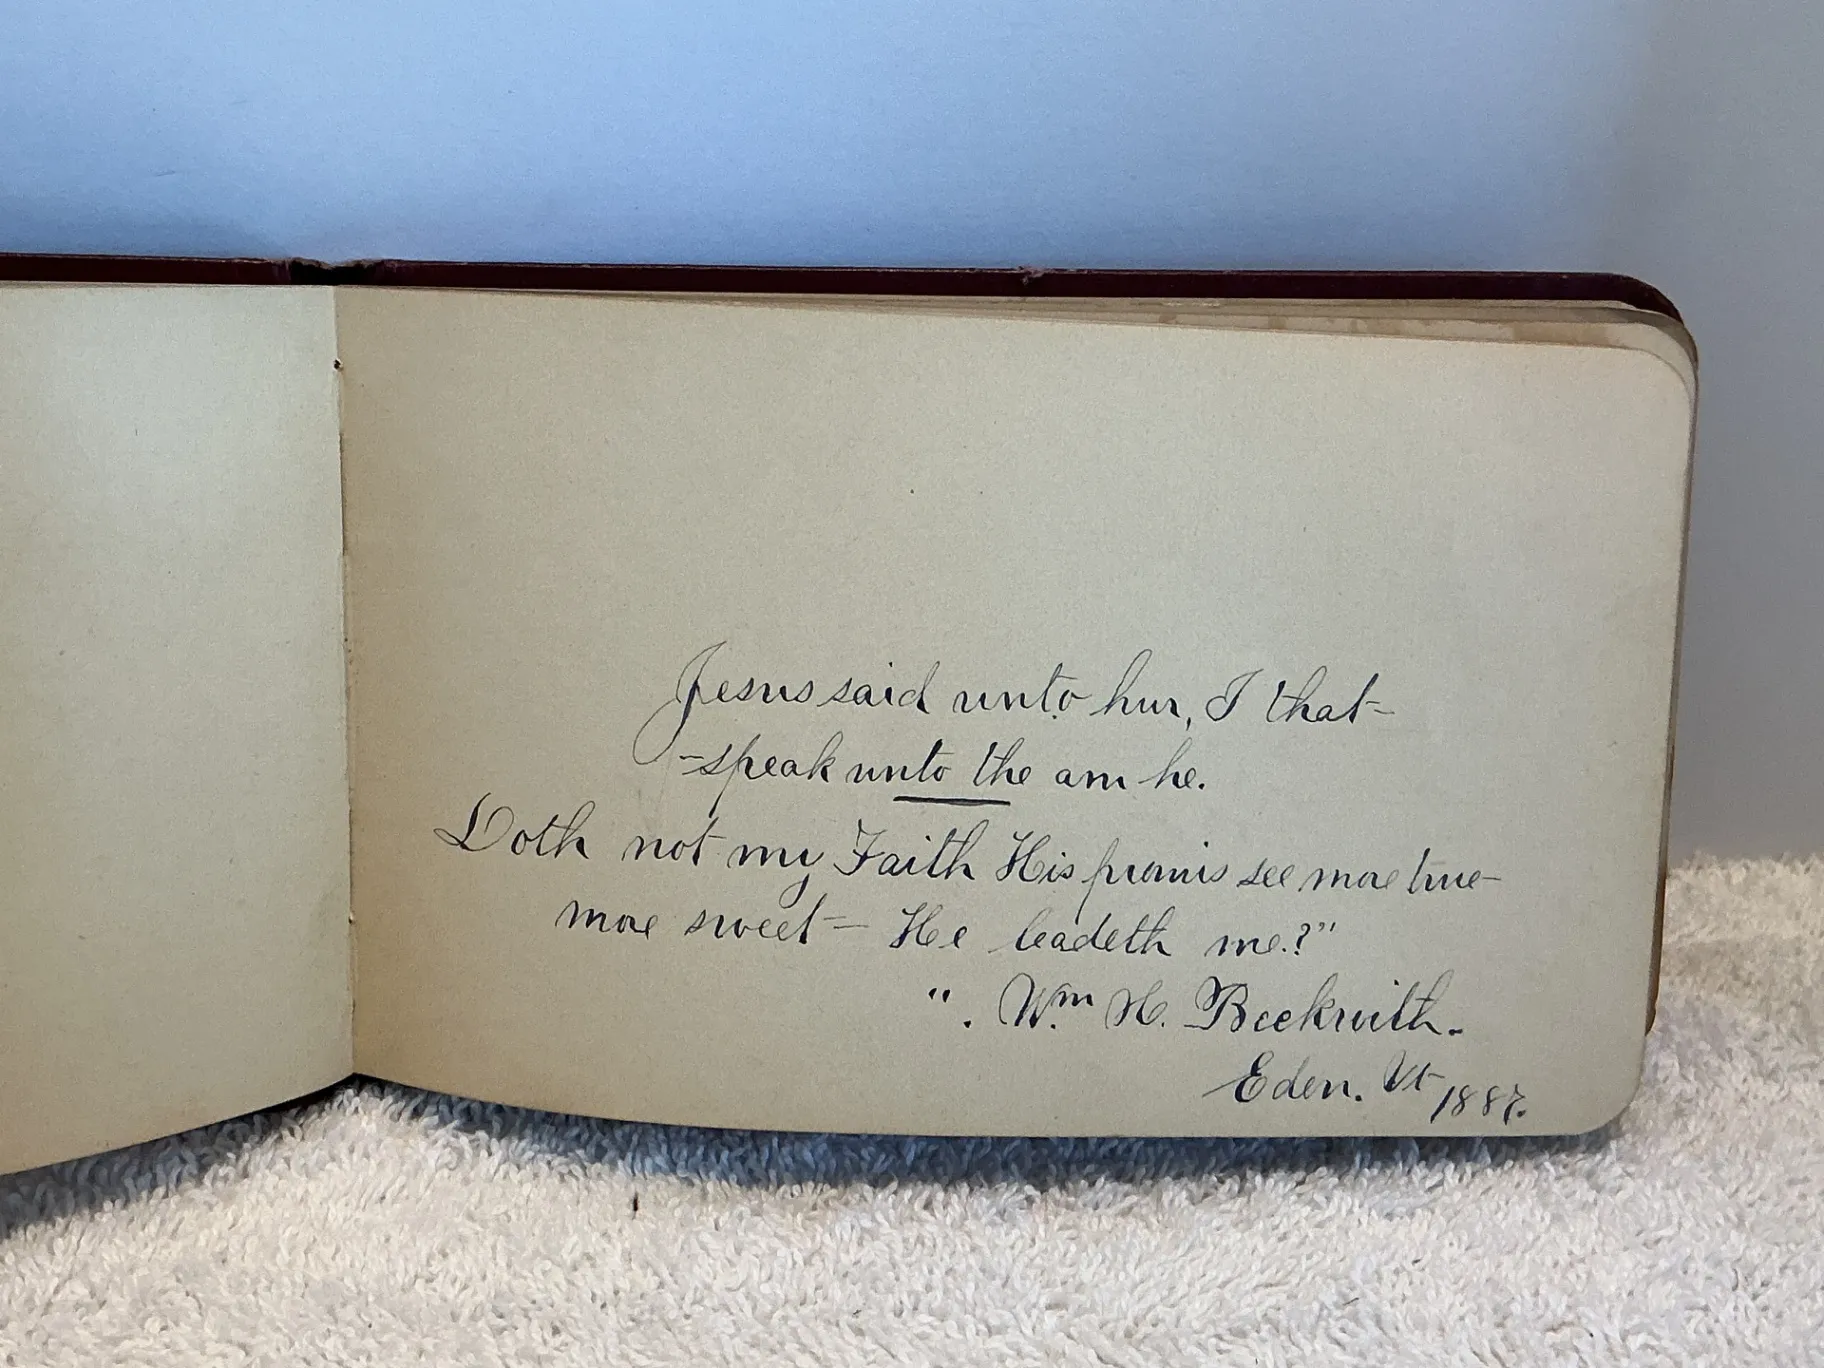 Jesus said unto hur, I that-
-speak unto the am he.
Doth not my Faith His promis see more true-
more sweet - He leadeth me.?"
". Wm H. Beckwith.
Eden. Vt 1887.